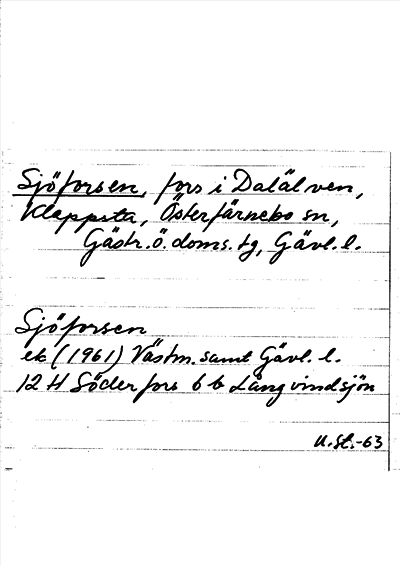 Sjöforsen, fors i Dalälven,
Klappsta, Österfärnebo sn,
Gästr. ö. doms. tg, Gävl. l.
Sjöforsen
ek (1961) Västm. samt Gävl. l.
12 H Söderfors 6 b Långvindsjön
U.St.-63